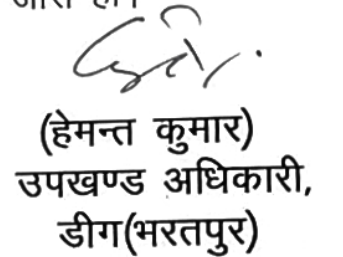 (हेमन्त कुमार)
उपखण्ड अधिकारी,
डीग(भरतपुर)